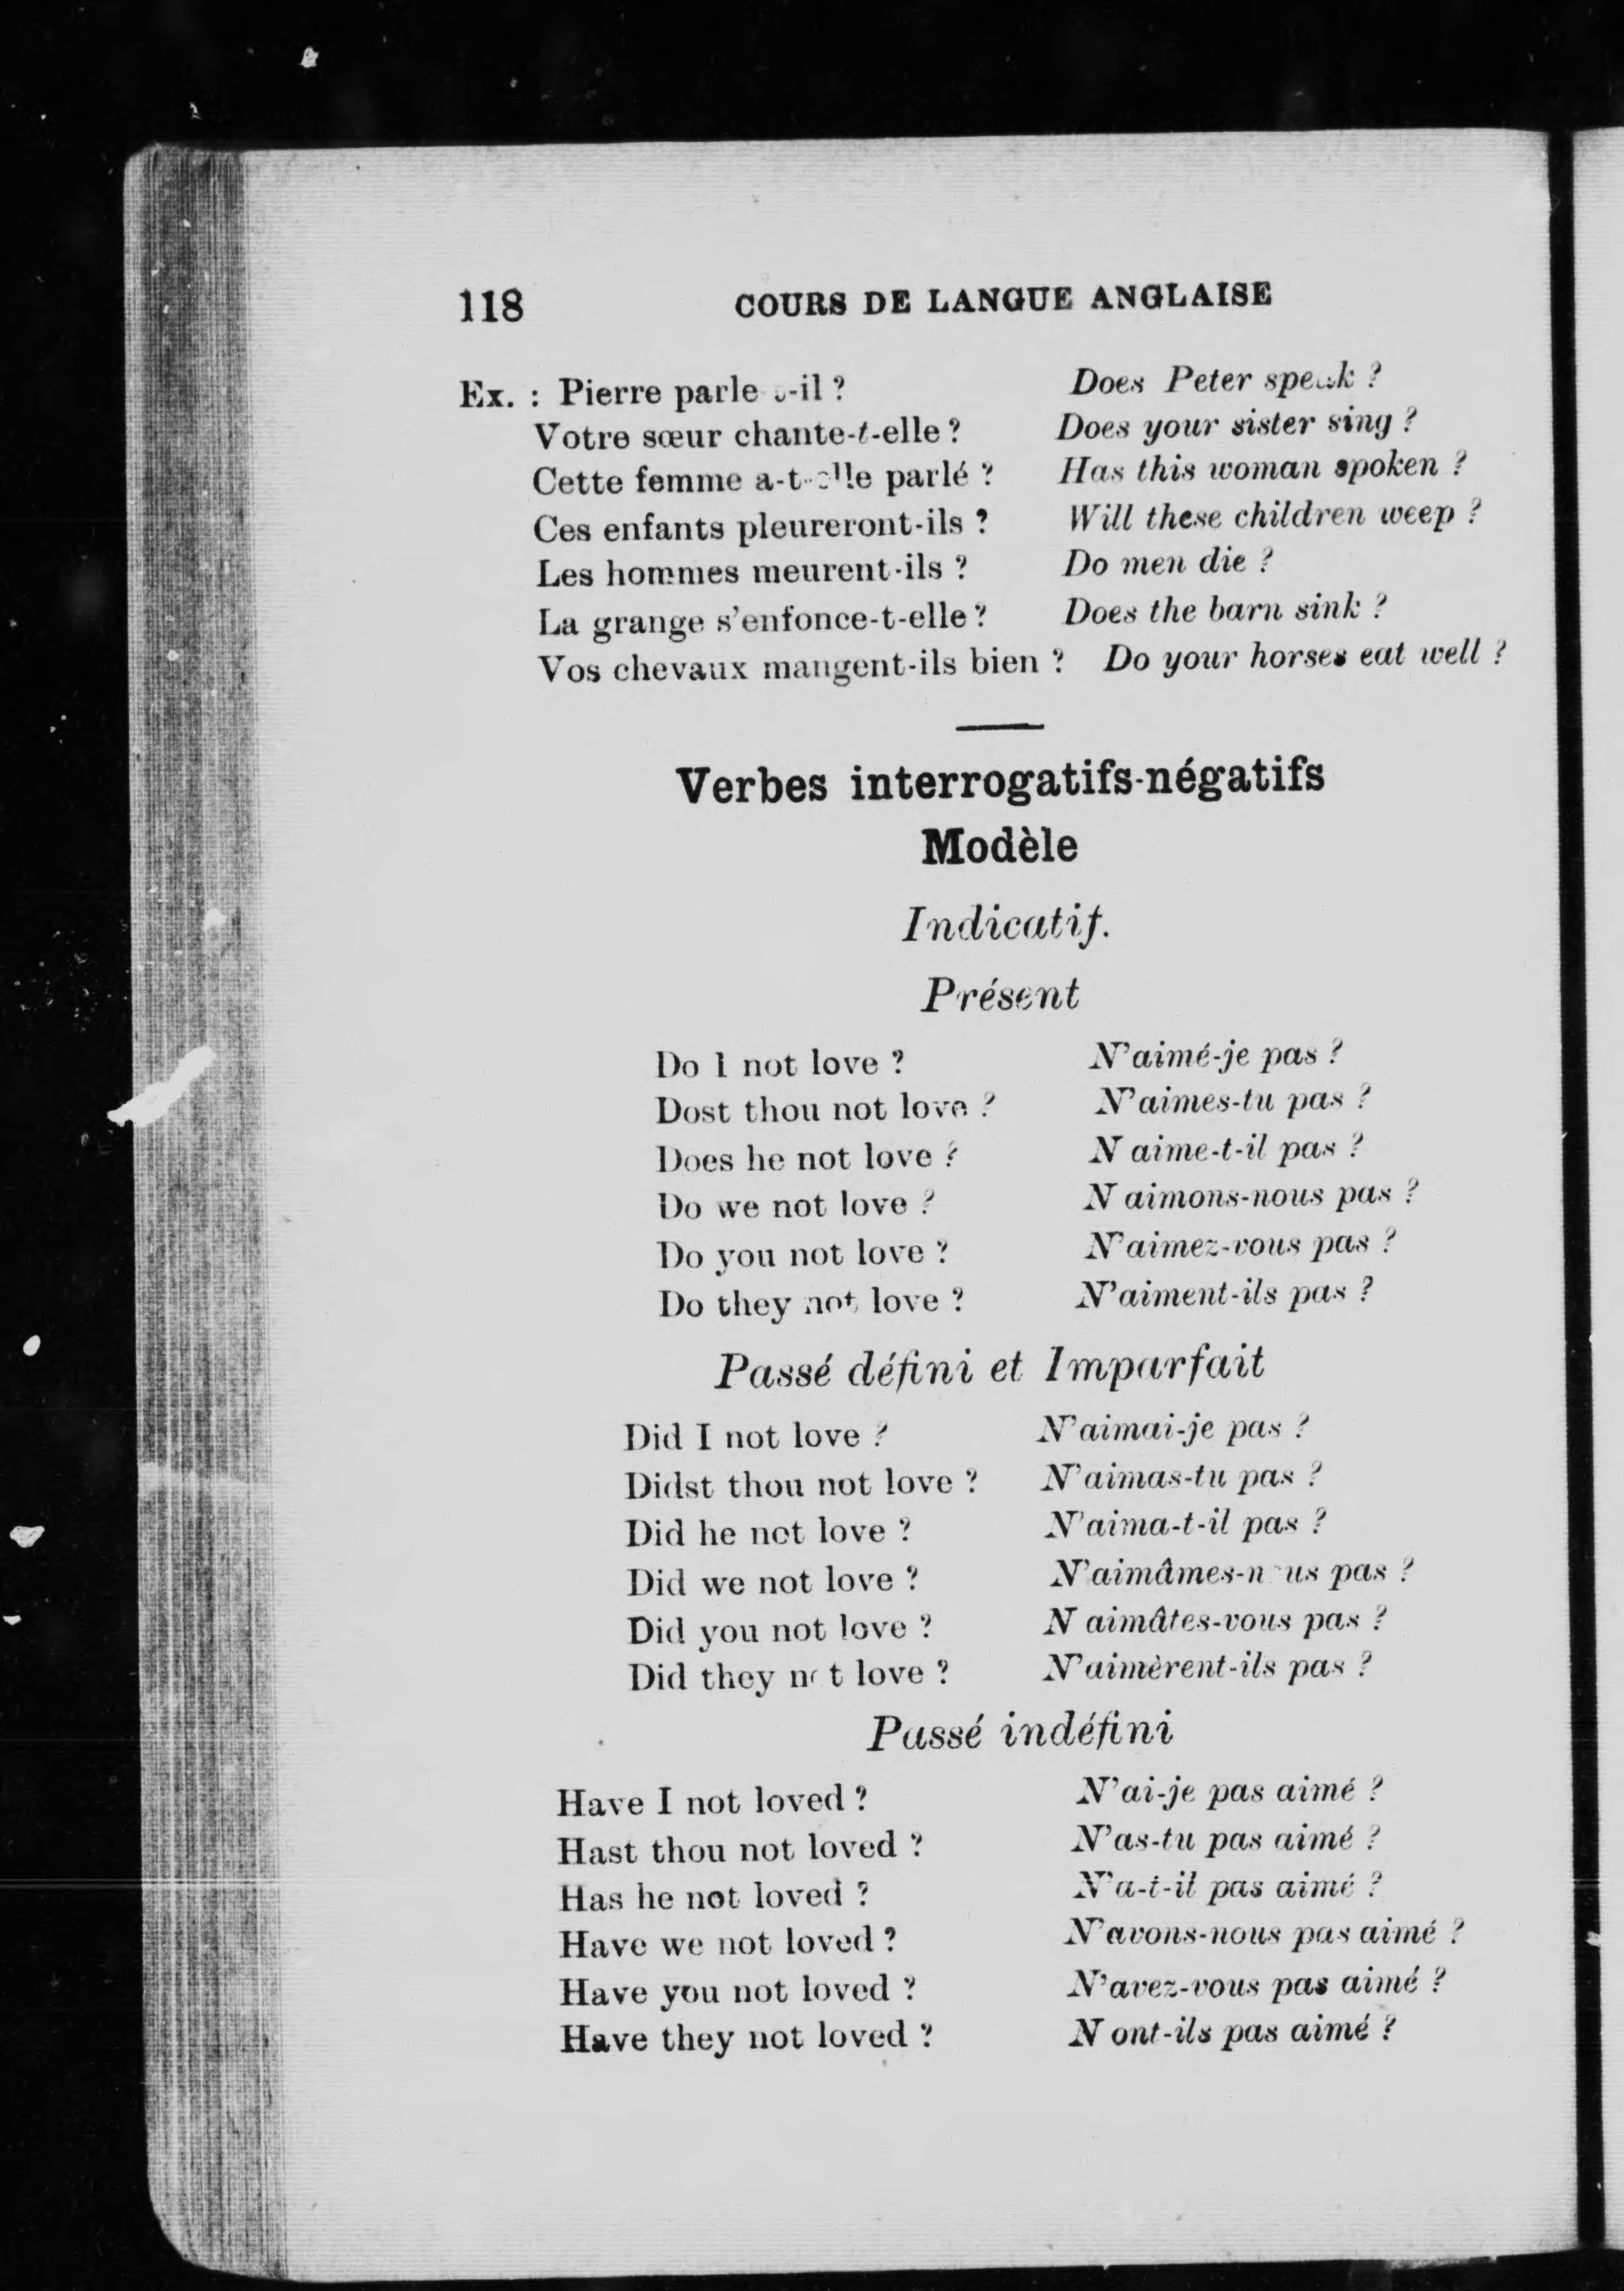 118 COURS DE LANGUE ANGLAISE
Ex. : Pierre parle -il ? Does Peter speak ?
Votre sœur chante-t-elle ? Does your sister sing ?
Cette femme a-t-elle parlé ? Has this woman spoken ?
Ces enfants pleureront-ils ? Will these children weep ?
Les hommes meurent-ils ? Do men die ?
La grange s'enfonce-t-elle ? Does the barn sink ?
Vos chevaux mangent-ils bien ? Do your horses eat well ?
Verbes interrogatifs-négatifs
Modèle
Indicatif.
Présent
Do I not love ? N'aimé-je pas ?
Dost thou not love ? N'aimes-tu pas ?
Does he not love ? N aime-t-il pas ?
Do we not love ? N aimons-nous pas ?
Do you not love ? N'aimez-vous pas ?
Do they not love ? N'aiment-ils pas ?
Passé défini et Imparfait
Did I not love ? N'aimai-je pas ?
Didst thou not love ? N'aimas-tu pas ?
Did he not love ? N'aima-t-il pas ?
Did we not love ? N'aimâmes-n us pas ?
Did you not love ? N aimâtes-vous pas ?
Did they not love ? N'aimèrent-ils pas ?
Passé indéfini
Have I not loved ? N'ai-je pas aimé ?
Hast thou not loved ? N'as-tu pas aimé ?
Has he not loved ? N'a-t-il pas aimé ?
Have we not loved ? N'avons-nous pas aimé ?
Have you not loved ? N'avez-vous pas aimé ?
Have they not loved ? N ont-ils pas aimé ?